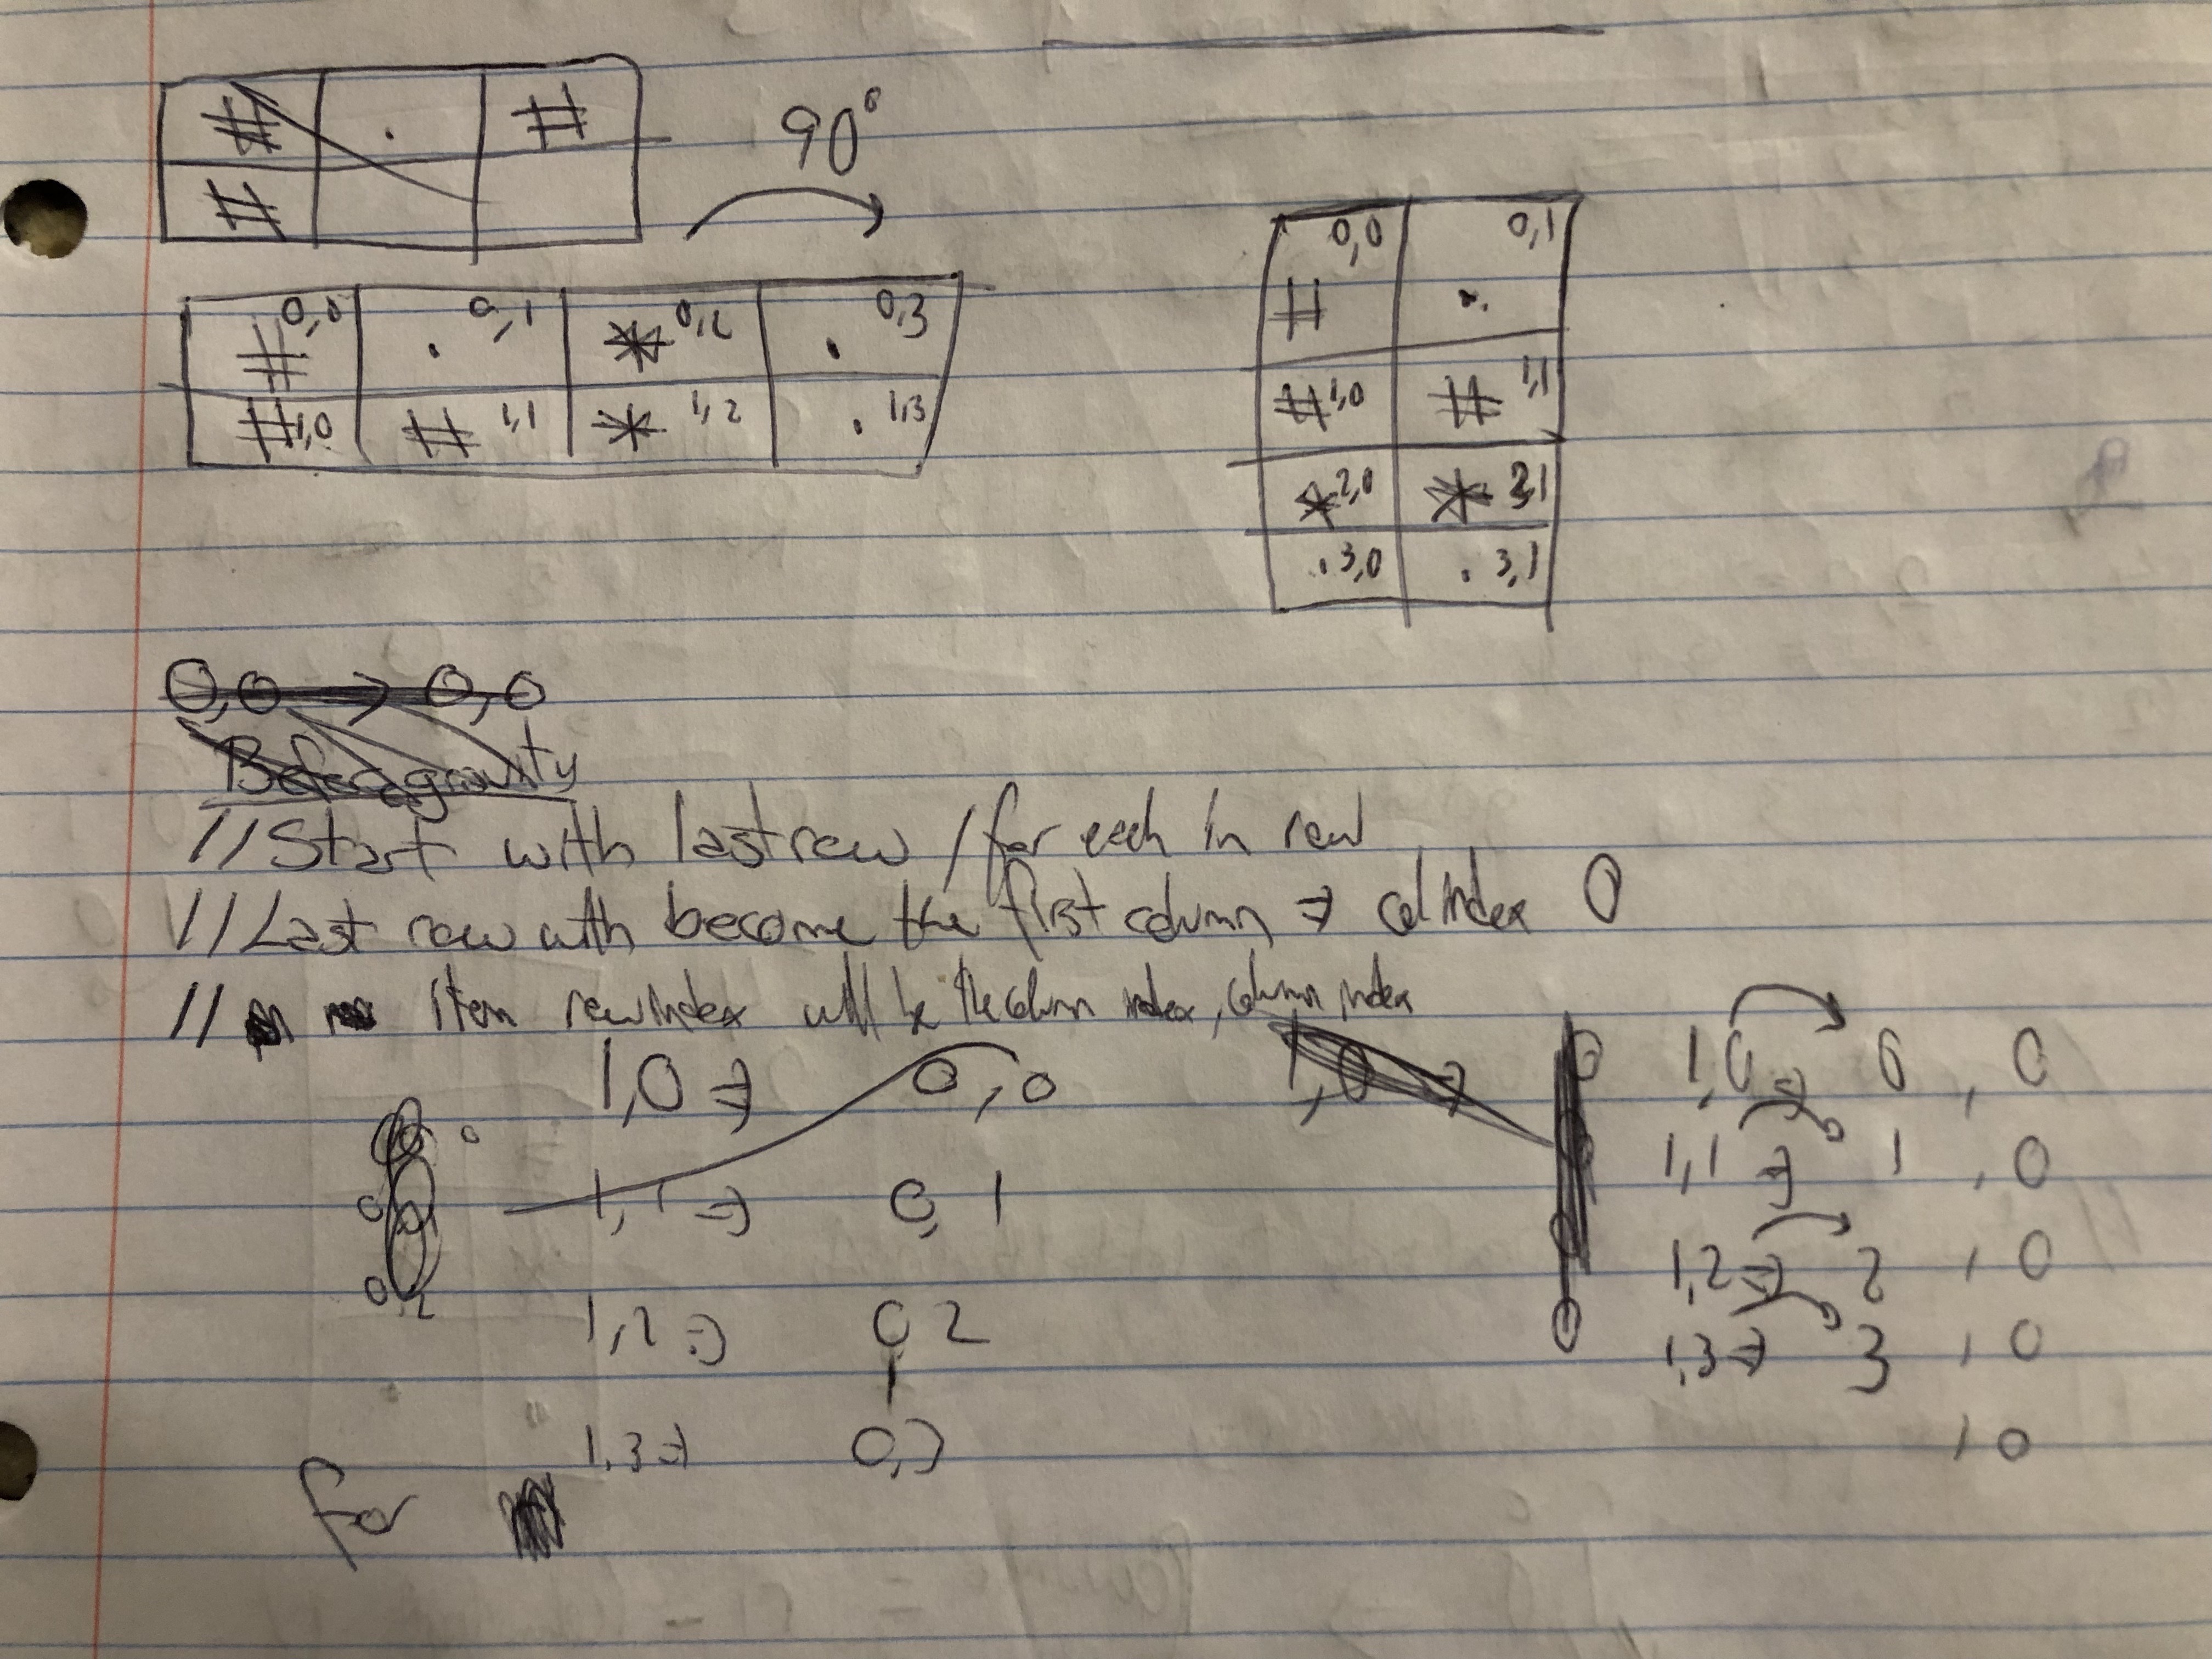 # . #
#
90°
0,0 0,1 0,2 0,3
# . * .
1,0 1,1 1,2 1,3
# # * .
0,0 0,1
# .
# 1,0 # 1,1
* 2,0 * 2,1
. 3,0 . 3,1
0,0 → 0,0
Before gravity
// Start with last row / for each in row
// Last row with become the first column ⇒ col index 0
// item row index will be the column index, column index
1,0 ⇒ 0,0
1,1 ⇒ 0,1
1,2 ⇒ 0,2
1,3 ⇒ 0,3
for
1,0 ⇒
1,0 ⇒ 0,0
1,1 ⇒ 1,0
1,2 ⇒ 2,0
1,3 ⇒ 3,0
,0